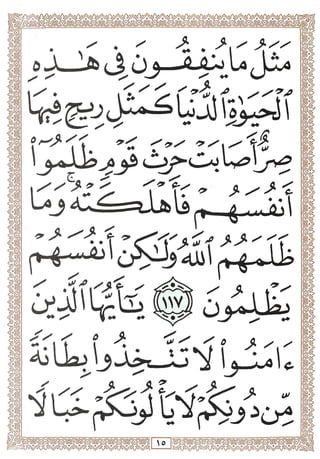 مَثَلُ مَا يُنفِقُونَ فِى هَـٰذِهِ
ٱلْحَيَوٰةِ ٱلدُّنْيَا كَمَثَلِ رِيحٍ فِيهَا
صِرٌّ أَصَابَتْ حَرْثَ قَوْمٍ ظَلَمُوٓا۟
أَنفُسَهُمْ فَأَهْلَكَتْهُ ۚ وَمَا
ظَلَمَهُمُ ٱللَّهُ وَلَـٰكِنْ أَنفُسَهُمْ
يَظْلِمُونَ ١١٧ يَـٰٓأَيُّهَا ٱلَّذِينَ
ءَامَنُوا۟ لَا تَتَّخِذُوا۟ بِطَانَةً
مِّن دُونِكُمْ لَا يَأْلُونَكُمْ خَبَالًا
١٥